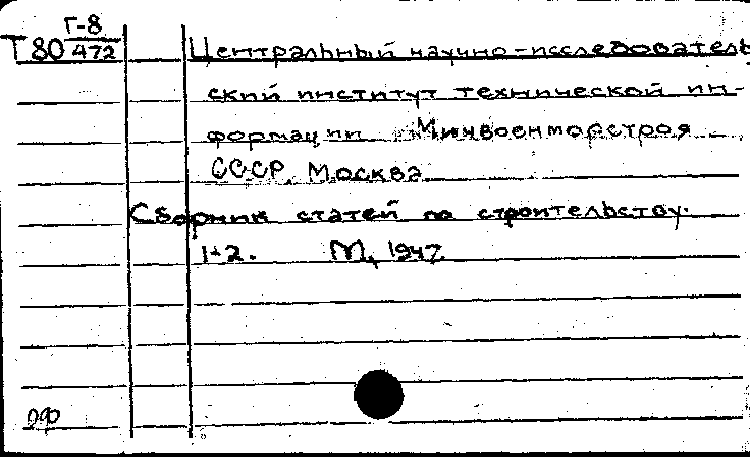 Г-8
Т 80 472
Центральный научно-исследователь
ский институт технической ин-
формации Минвоенморстроя
СССР. Москва
Сборник статей по строительству.
1-2. М, 1947